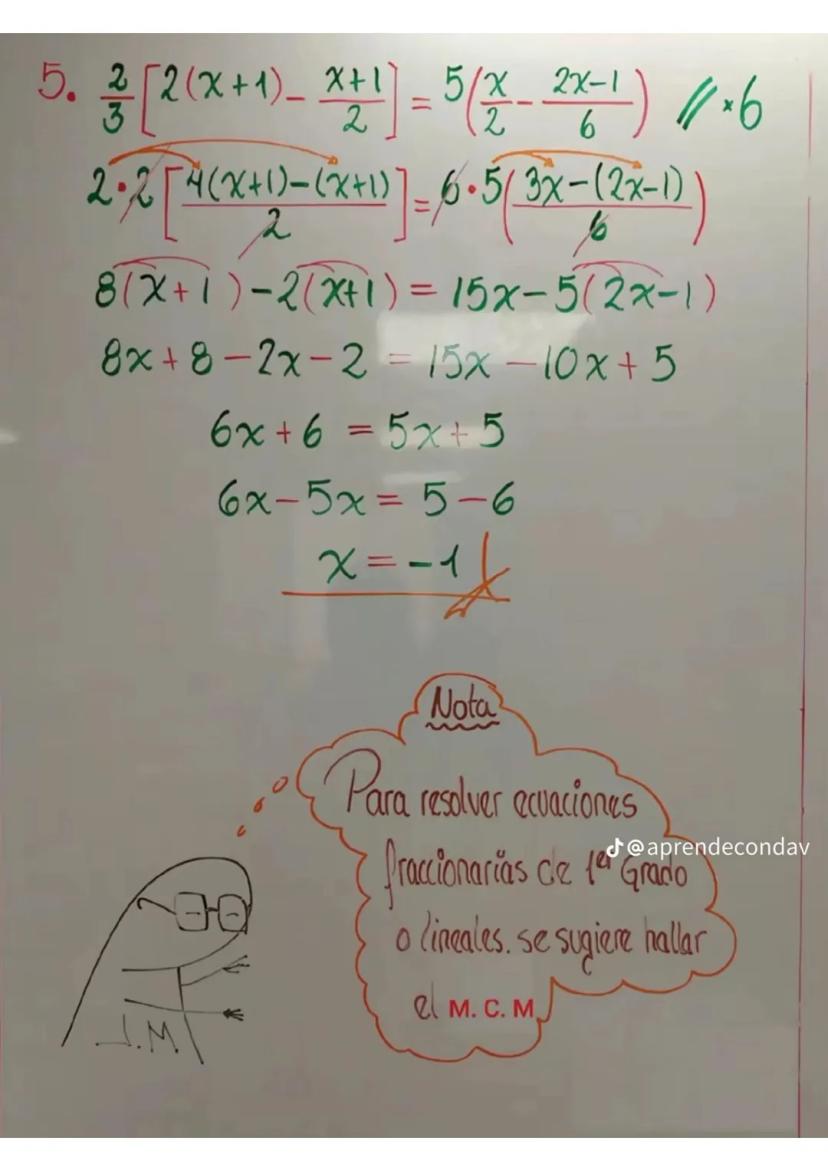 5. 2/3 [2(x+1) - (x+1)/2] = 5(x/2 - (2x-1)/6) // ×6
2·2 [(4(x+1)-(x+1))/2] = 6·5((3x-(2x-1))/6)
8(x+1)-2(x+1) = 15x-5(2x-1)
8x+8-2x-2 = 15x-10x+5
6x+6 = 5x+5
6x-5x = 5-6
x = -1
Nota
Para resolver ecuaciones
@aprendecondav
fraccionarias de 1er Grado
o lineales. se sugiere hallar
el M. C. M.
J.M.